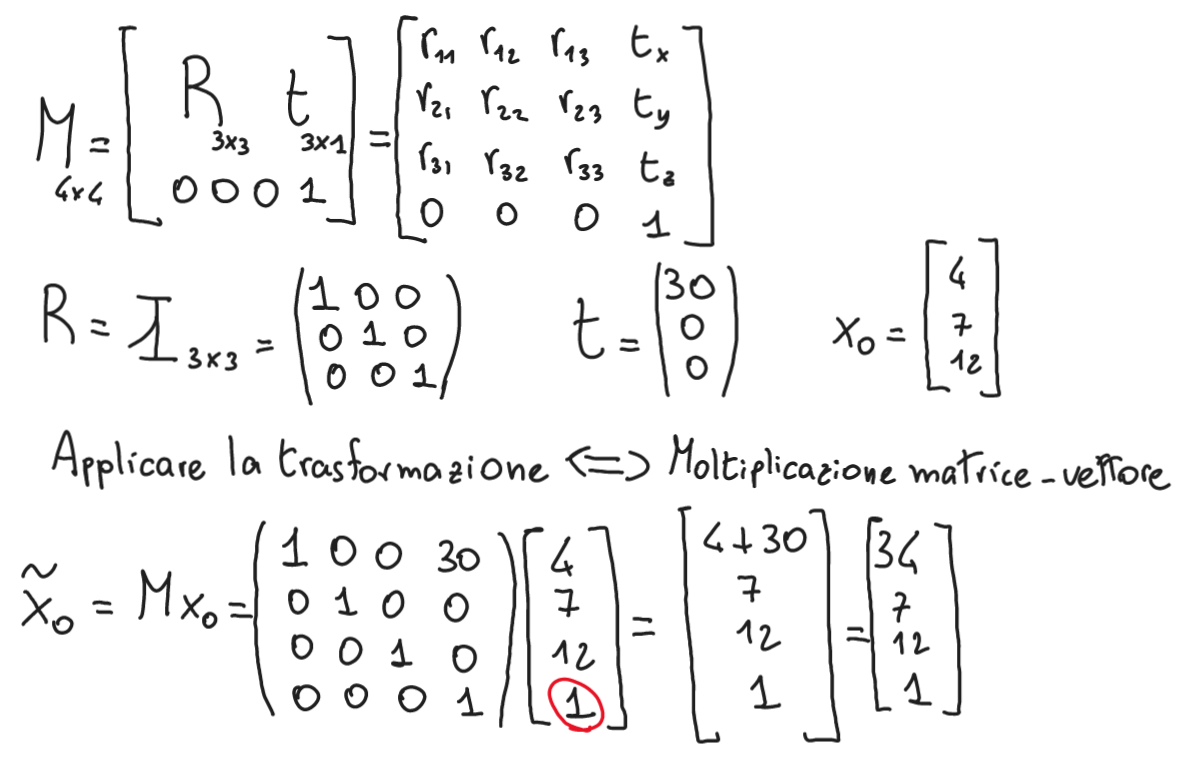 M₄ₓ₄ = [ R₃ₓ₃ t₃ₓ₁ ; 0 0 0 1 ] = [ r₁₁ r₁₂ r₁₃ tₓ ; r₂₁ r₂₂ r₂₃ t_y ; r₃₁ r₃₂ r₃₃ t_z ; 0 0 0 1 ]
R = I₃ₓ₃ = ( 1 0 0 ; 0 1 0 ; 0 0 1 ) t = ( 30 ; 0 ; 0 ) x₀ = [ 4 ; 7 ; 12 ]
Applicare la trasformazione <=> Moltiplicazione matrice-vettore
x̃₀ = Mx₀ = ( 1 0 0 30 ; 0 1 0 0 ; 0 0 1 0 ; 0 0 0 1 ) [ 4 ; 7 ; 12 ; 1 ] = [ 4+30 ; 7 ; 12 ; 1 ] = [ 34 ; 7 ; 12 ; 1 ]